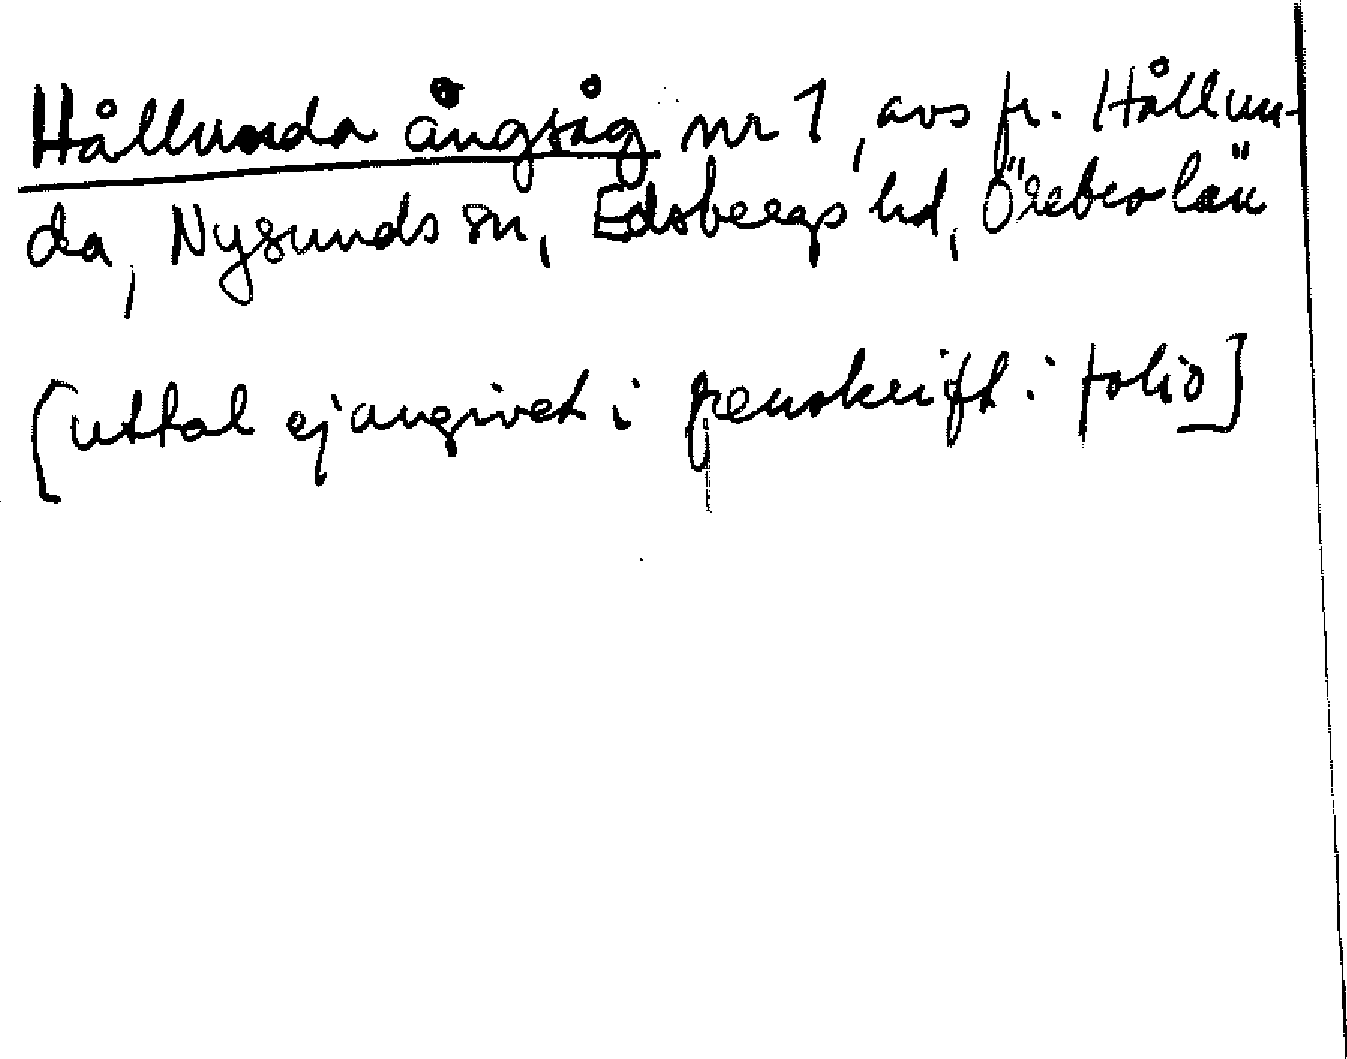 Hållunda ångsåg nr 1, avs fr. Hållun-
da, Nysunds sn, Edsbergs hd, Örebro län
[uttal ej angivet i renskrift i folio]